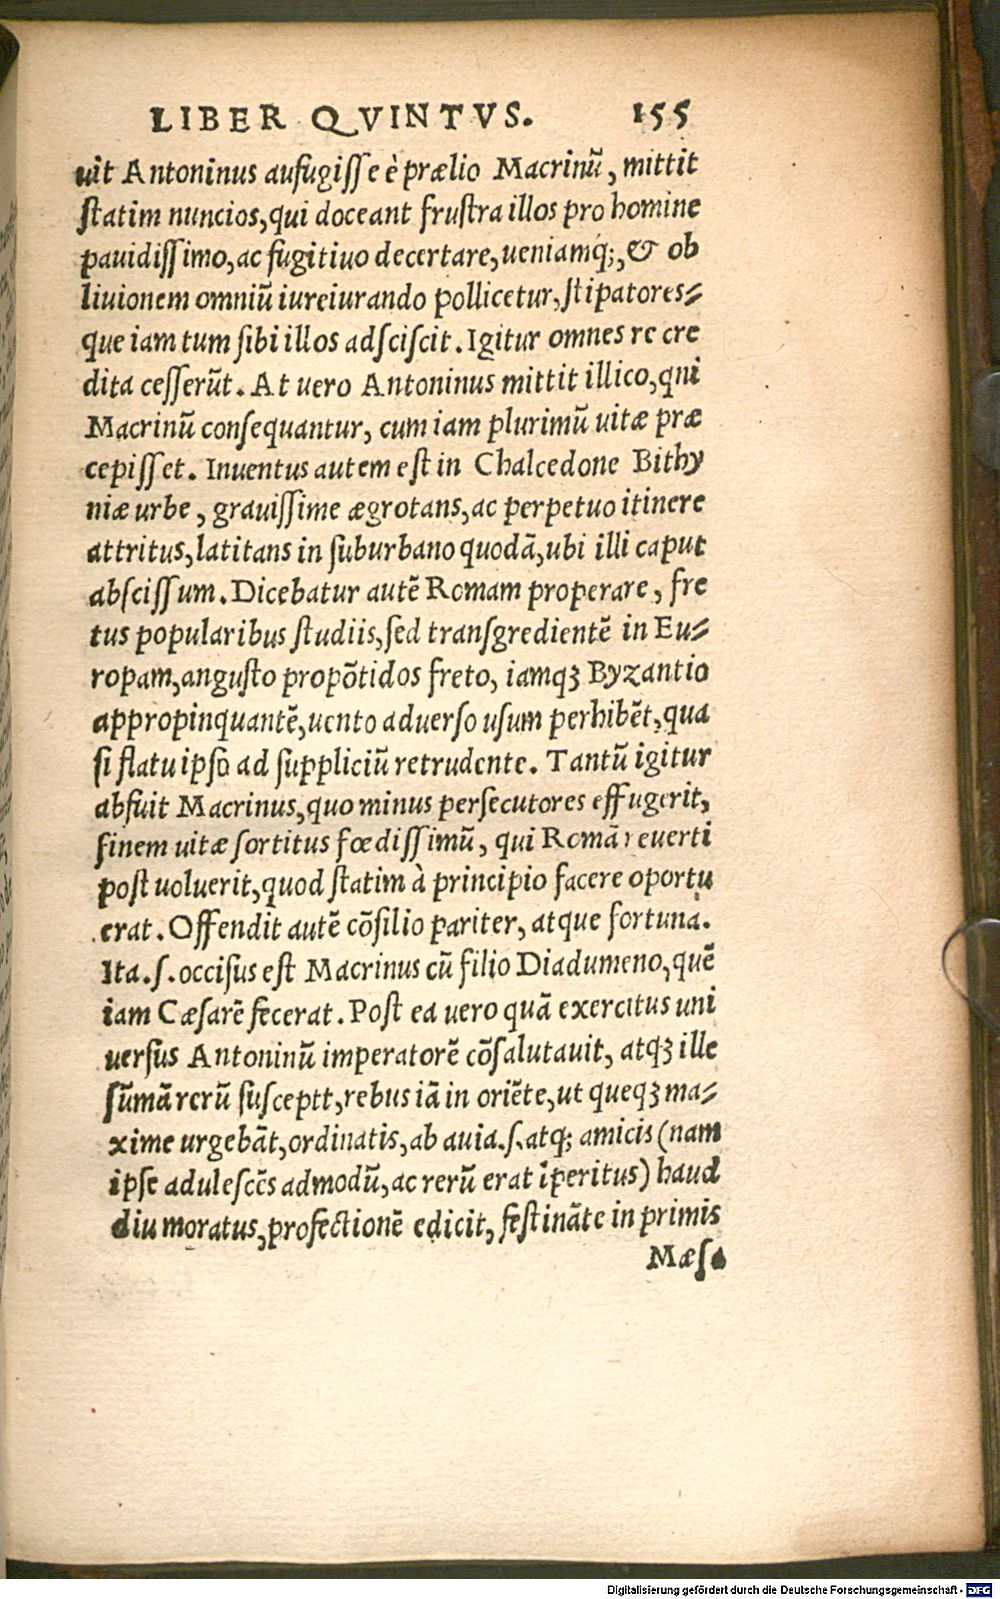 LIBER QVINTVS. 155
uit Antoninus aufugisse è prælio Macrinū, mittit
statim nuncios, qui doceant frustra illos pro homine
pauidissimo, ac fugitiuo decertare, ueniamq́;, & ob
liuionem omniū iureiurando pollicetur, stipatores⸗
que iam tum sibi illos adsciscit. Igitur omnes re cre
dita cesserūt. At uero Antoninus mittit illico, qui
Macrinū consequantur, cum iam plurimū uitæ præ
cepisset. Inuentus autem est in Chalcedone Bithy
niæ urbe, grauissime ægrotans, ac perpetuo itinere
attritus, latitans in suburbano quodā, ubi illi caput
abscissum. Dicebatur autē Romam properare, fre
tus popularibus studiis, sed transgredientē in Eu⸗
ropam, angusto propōtidos freto, iamqꝫ Byzantio
appropinquantē, uento aduerso usum perhibēt, qua
si flatu ipso ad suppliciū retrudente. Tantū igitur
abfuit Macrinus, quo minus persecutores effugerit,
finem uitæ sortitus fœdissimū, qui Romā reuerti
post uoluerit, quod statim à principio facere oportu
erat. Offendit autē cōsilio pariter, atque fortuna.
Ita.s. occisus est Macrinus cū filio Diadumeno, quē
iam Cæsarē fecerat. Post ea uero quā exercitus uni
uersus Antoninū imperatorē cōsalutauit, atqꝫ ille
sūmā rerū susceptt, rebus iā in oriēte, ut queqꝫ ma⸗
xime urgebāt, ordinatis, ab auia.s. atq; amicis (nam
ipse adulescēs admodū, ac rerū erat īperitus) haud
diu moratus, profectionē edicit, festināte in primis
Mæsa
Digitalisierung gefördert durch die Deutsche Forschungsgemeinschaft - DFG